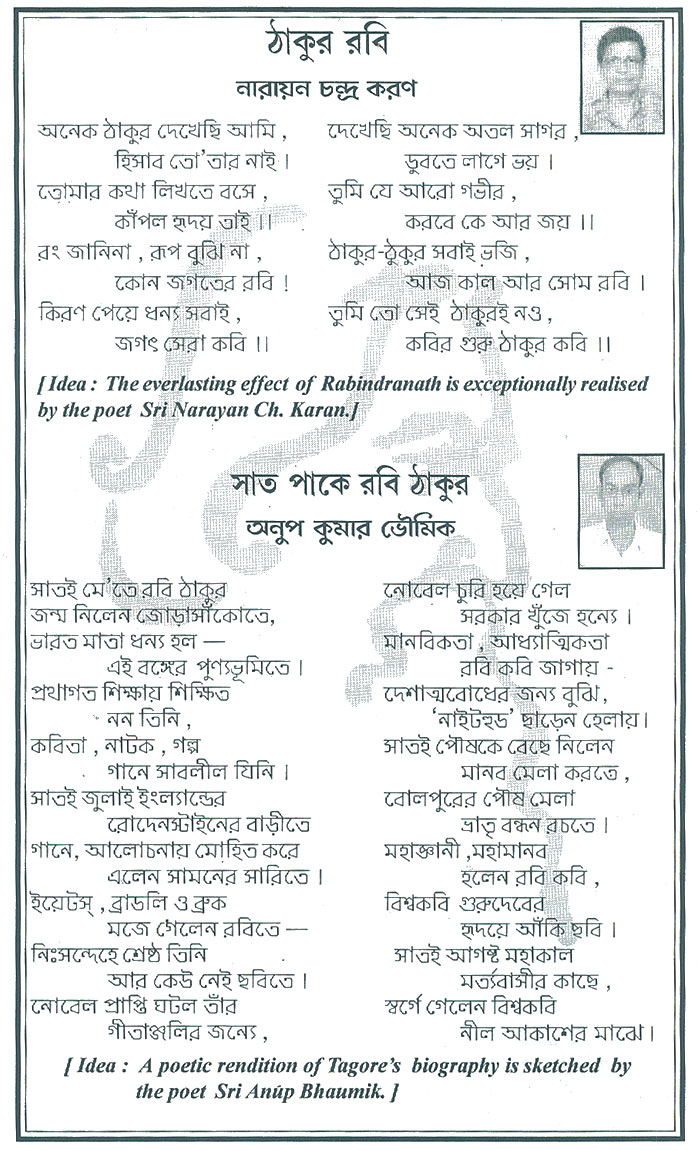 ঠাকুর রবি
নারায়ন চন্দ্র করণ
অনেক ঠাকুর দেখেছি আমি ,
হিসাব তো'তার নাই ।
তোমার কথা লিখতে বসে ,
কাঁপল হৃদয় তাই ।।
রং জানিনা , রূপ বুঝি না ,
কোন জগতের রবি !
কিরণ পেয়ে ধন্য সবাই ,
জগৎ সেরা কবি ।।
দেখেছি অনেক অতল সাগর ,
ডুবতে লাগে ভয় ।
তুমি যে আরো গভীর ,
করবে কে আর জয় ।।
ঠাকুর-ঠুকুর সবাই ভজি ,
আজ কাল আর সোম রবি ।
তুমি তো সেই ঠাকুরই নও ,
কবির গুরু ঠাকুর কবি ।।
[ Idea : The everlasting effect of Rabindranath is exceptionally realised
by the poet Sri Narayan Ch. Karan.]
সাত পাকে রবি ঠাকুর
অনুপ কুমার ভৌমিক
সাতই মে'তে রবি ঠাকুর
জন্ম নিলেন জোড়াসাঁকোতে,
ভারত মাতা ধন্য হল —
এই বঙ্গের পুণ্যভূমিতে ।
প্রথাগত শিক্ষায় শিক্ষিত
নন তিনি ,
কবিতা , নাটক , গল্প
গানে সাবলীল যিনি ।
সাতই জুলাই ইংল্যান্ডের
রোদেনস্টাইনের বাড়ীতে
গানে, আলোচনায় মোহিত করে
এলেন সামনের সারিতে ।
ইয়েটস্ , ব্রাডলি ও ব্রুক
মজে গেলেন রবিতে —
নিঃসন্দেহে শ্রেষ্ঠ তিনি
আর কেউ নেই ছবিতে ।
নোবেল প্রাপ্তি ঘটল তাঁর
গীতাঞ্জলির জন্যে ,
নোবেল চুরি হয়ে গেল
সরকার খুঁজে হন্যে ।
মানবিকতা , আধ্যাত্মিকতা
রবি কবি জাগায় -
দেশাত্মবোধের জন্য বুঝি,
‘নাইটহুড’ ছাড়েন হেলায়।
সাতই পৌষকে বেছে নিলেন
মানব মেলা করতে ,
বোলপুরের পৌষ মেলা
ভ্রাতৃ বন্ধন রচতে ।
মহাজ্ঞানী ,মহামানব
হলেন রবি কবি ,
বিশ্বকবি গুরুদেবের
হৃদয়ে আঁকি ছবি ।
সাতই আগষ্ট মহাকাল
মর্ত্যবাসীর কাছে ,
স্বর্গে গেলেন বিশ্বকবি
নীল আকাশের মাঝে।
[ Idea : A poetic rendition of Tagore's biography is sketched by
the poet Sri Anup Bhaumik. ]